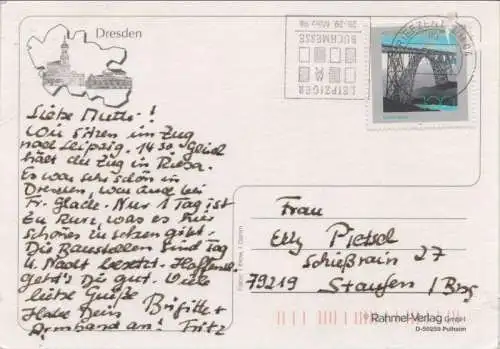 Dresden
Liebe Mutti!
Wir sitzen im Zug
nach Leipzig. 14 30 Gleich
hält der Zug in Riesa.
Es war sehr schön in
Dresden, war auch bei
Fr. Glade. Nur 1 Tag ist
zu kurz, was es hier
schönes zu sehen gibt.
Die Baustellen sind Tag
u. Nacht besetzt. Hoffentl.
geht's Dir gut. Viele
liebe Grüße Brigitte +
Habe Dein
Armband an! Fritz
LEIPZIGER
BUCHMESSE
26.-29. März 98
BRIEFZENTRUM 04
100
Frau
Elly Pietsch
Schießrain 27
79219 Staufen / Brsg
Rahmel-Verlag GmbH
D-50259 Pulheim